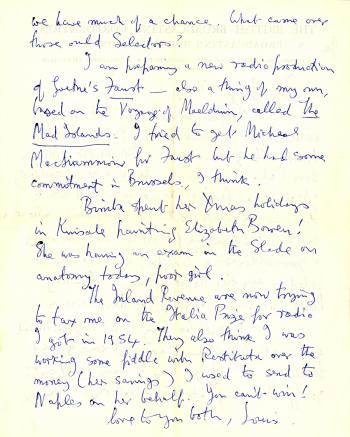 we have much of a chance. What came over
those ould Selectors?
I am preparing a new radio production
of Goethe's Faust — also a thing of my own,
based on the Voyage of Maelduin, called The
Mad Islands. I tried to get Micheal
MacLiammoir for Faust but he had some
commitment in Brussels, I think.
Bimba spent her Xmas holidays
in Kinsale painting Elizabeth Bowen!
She was having an exam in the Slade on
anatomy today, poor girl.
The Inland Revenue are now trying
to tax me on the Italia Prize for radio
I got in 1954. They also think I was
working some fiddle with Restituta over the
money (her savings) I used to send to
Naples on her behalf. You can't win!
love to you both, Louis